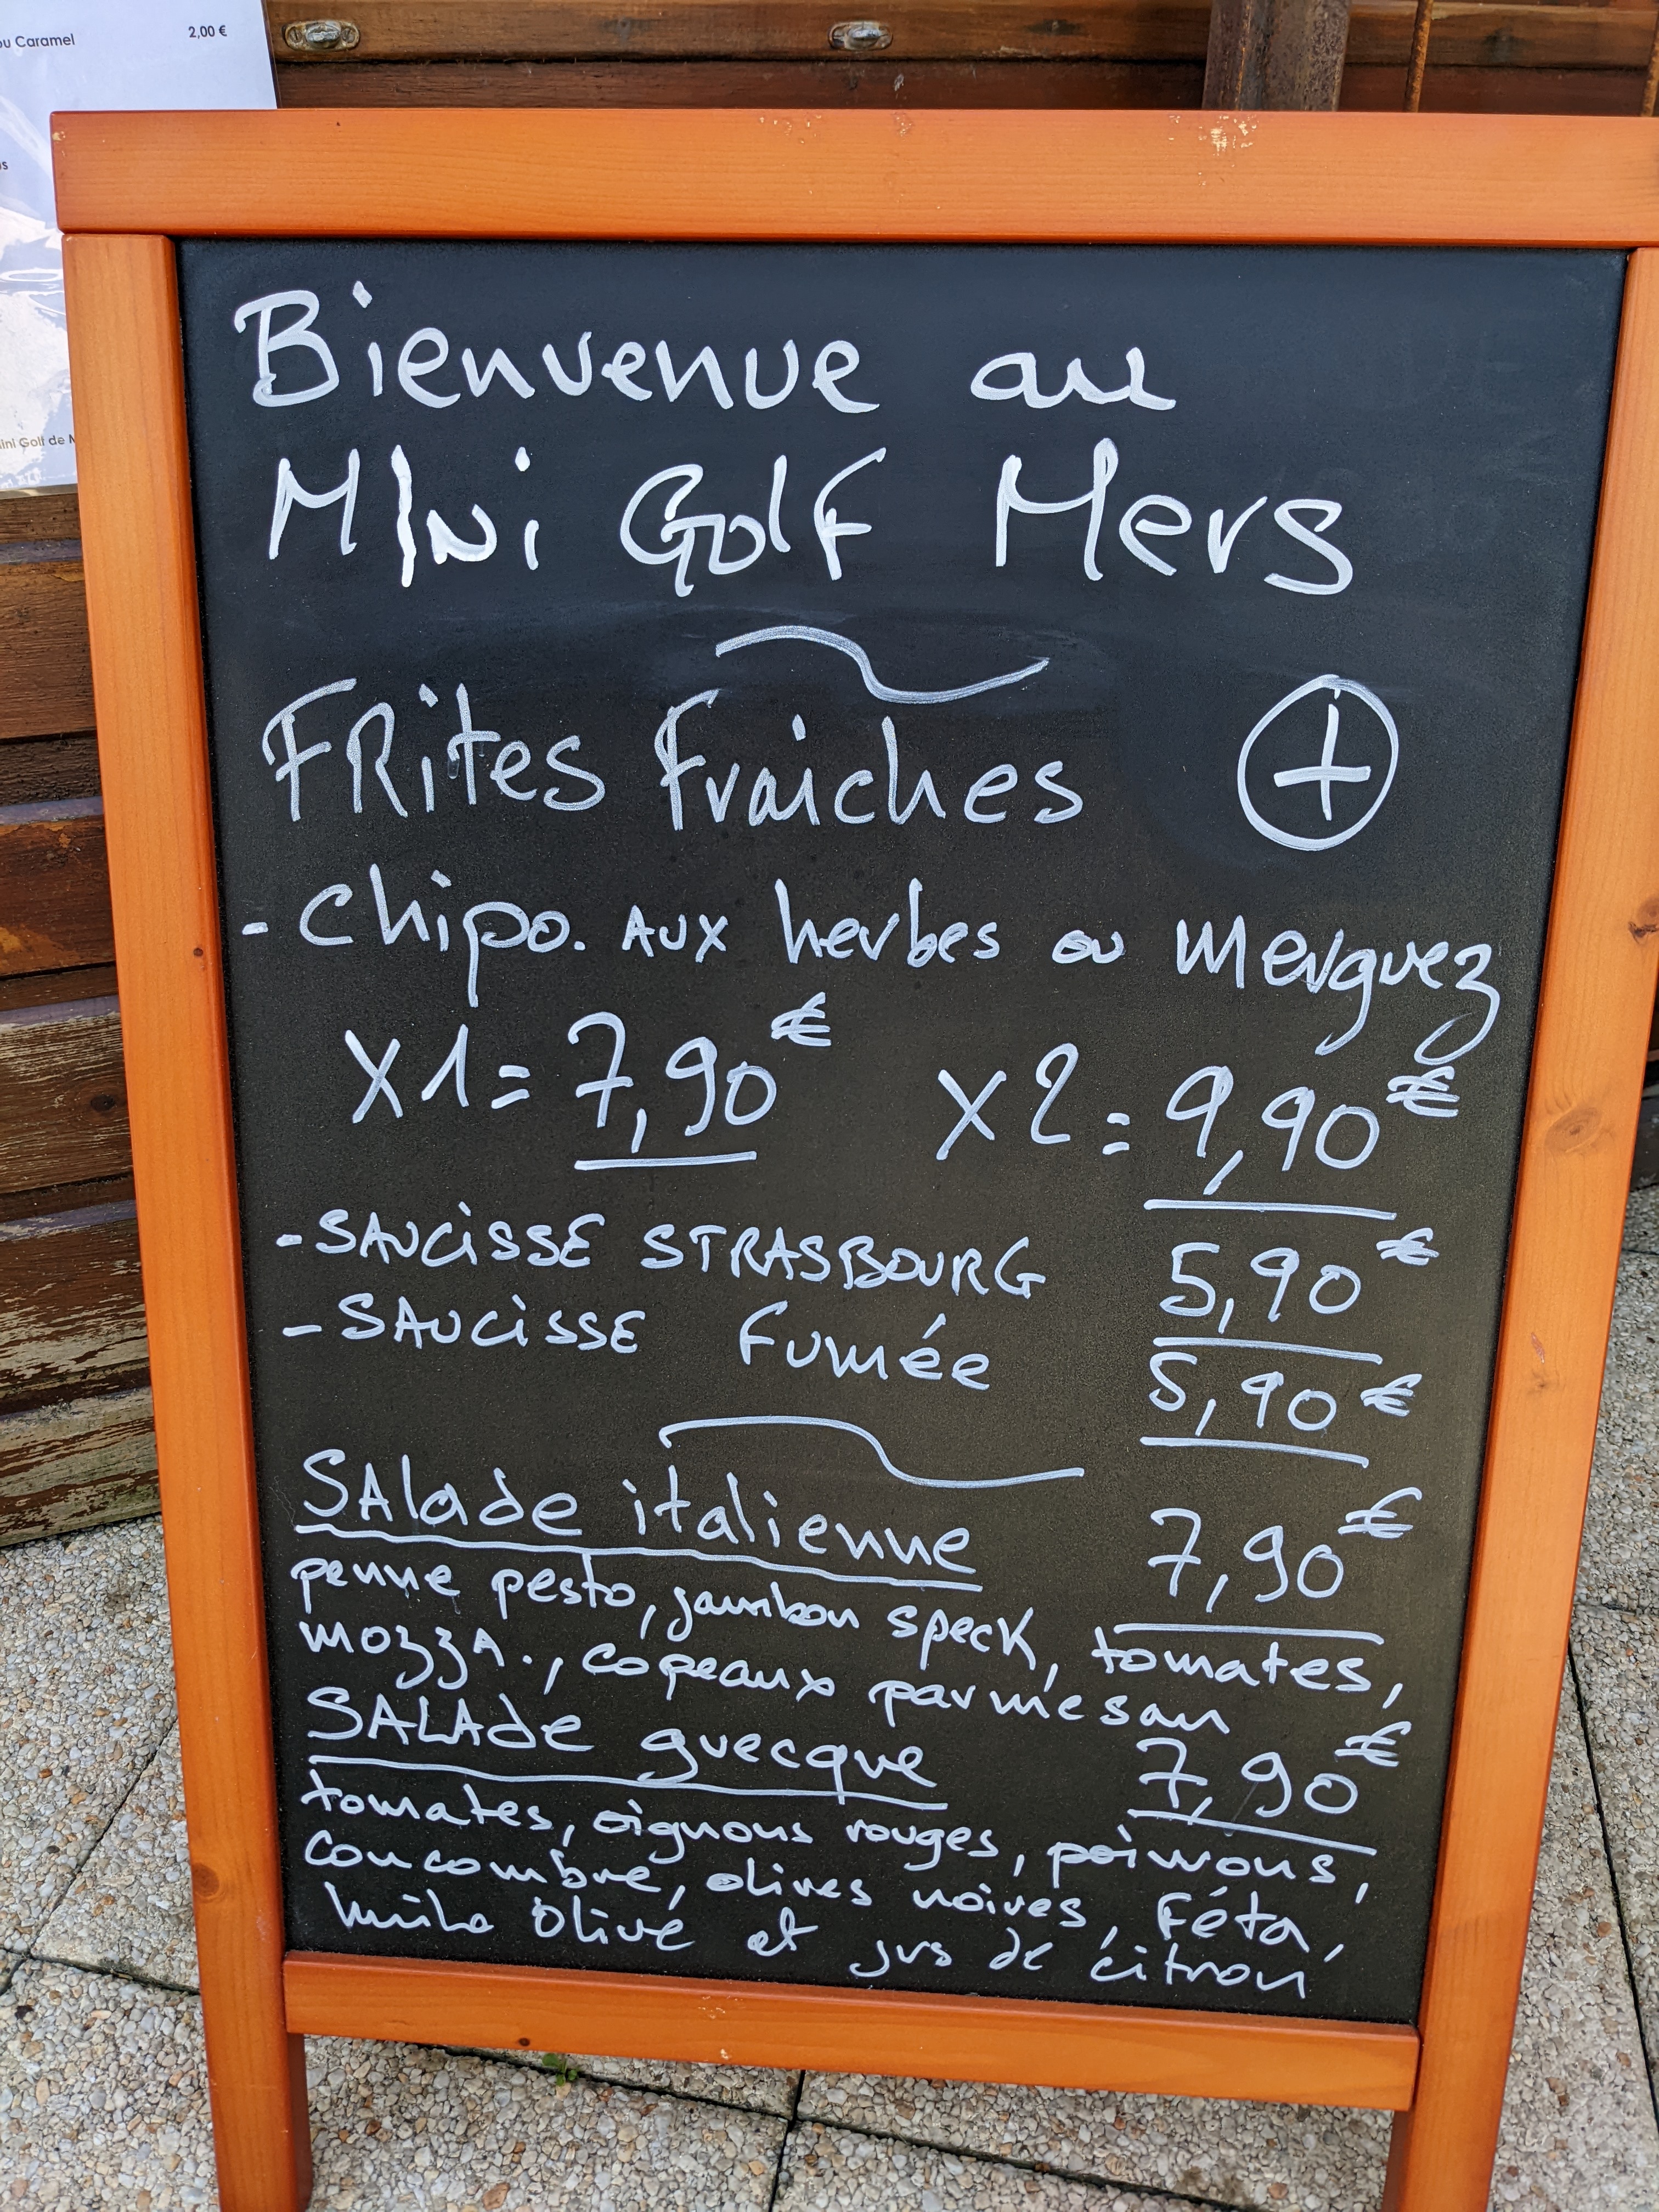 ou Caramel 2,00 €
ini Golf de M
Bienvenue au
MiNi Golf Mers
FRites Fraiches +
- Chipo. AUX herbes ou Merguez
X1 = 7,90€ X2 = 9,90€
- SAUCiSSE STRASBOURG 5,90€
- SAUCiSSE fumée 5,90€
SAlade italienne 7,90€
penne pesto, jambon speck, tomates,
mozzA., copeaux parmesan
SALAde grecque 7,90€
tomates, oignons rouges, poivrons,
concombre, olives noires, Féta,
huile olive et jus de citron